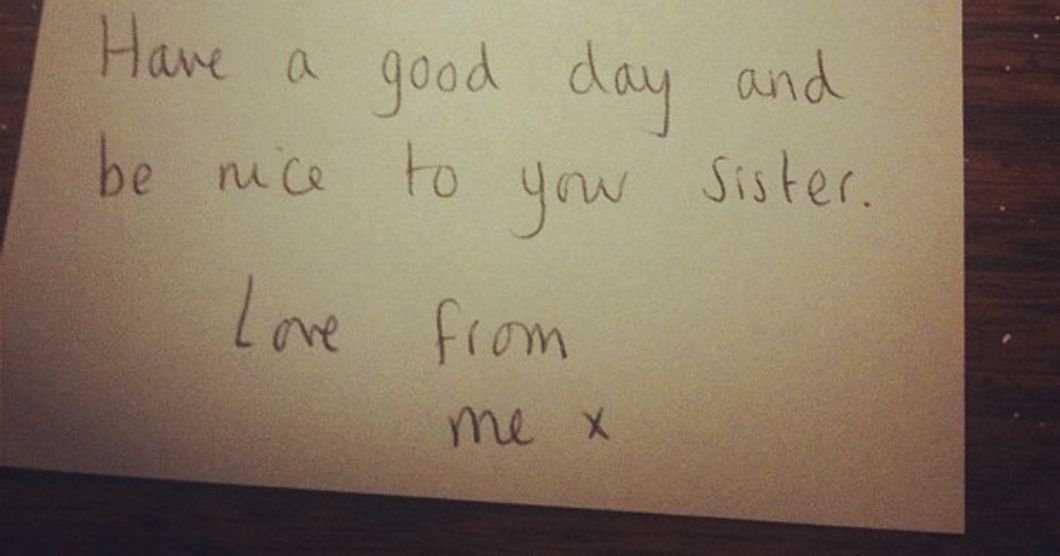 Have a good day and
be nice to your sister.
Love from
me x